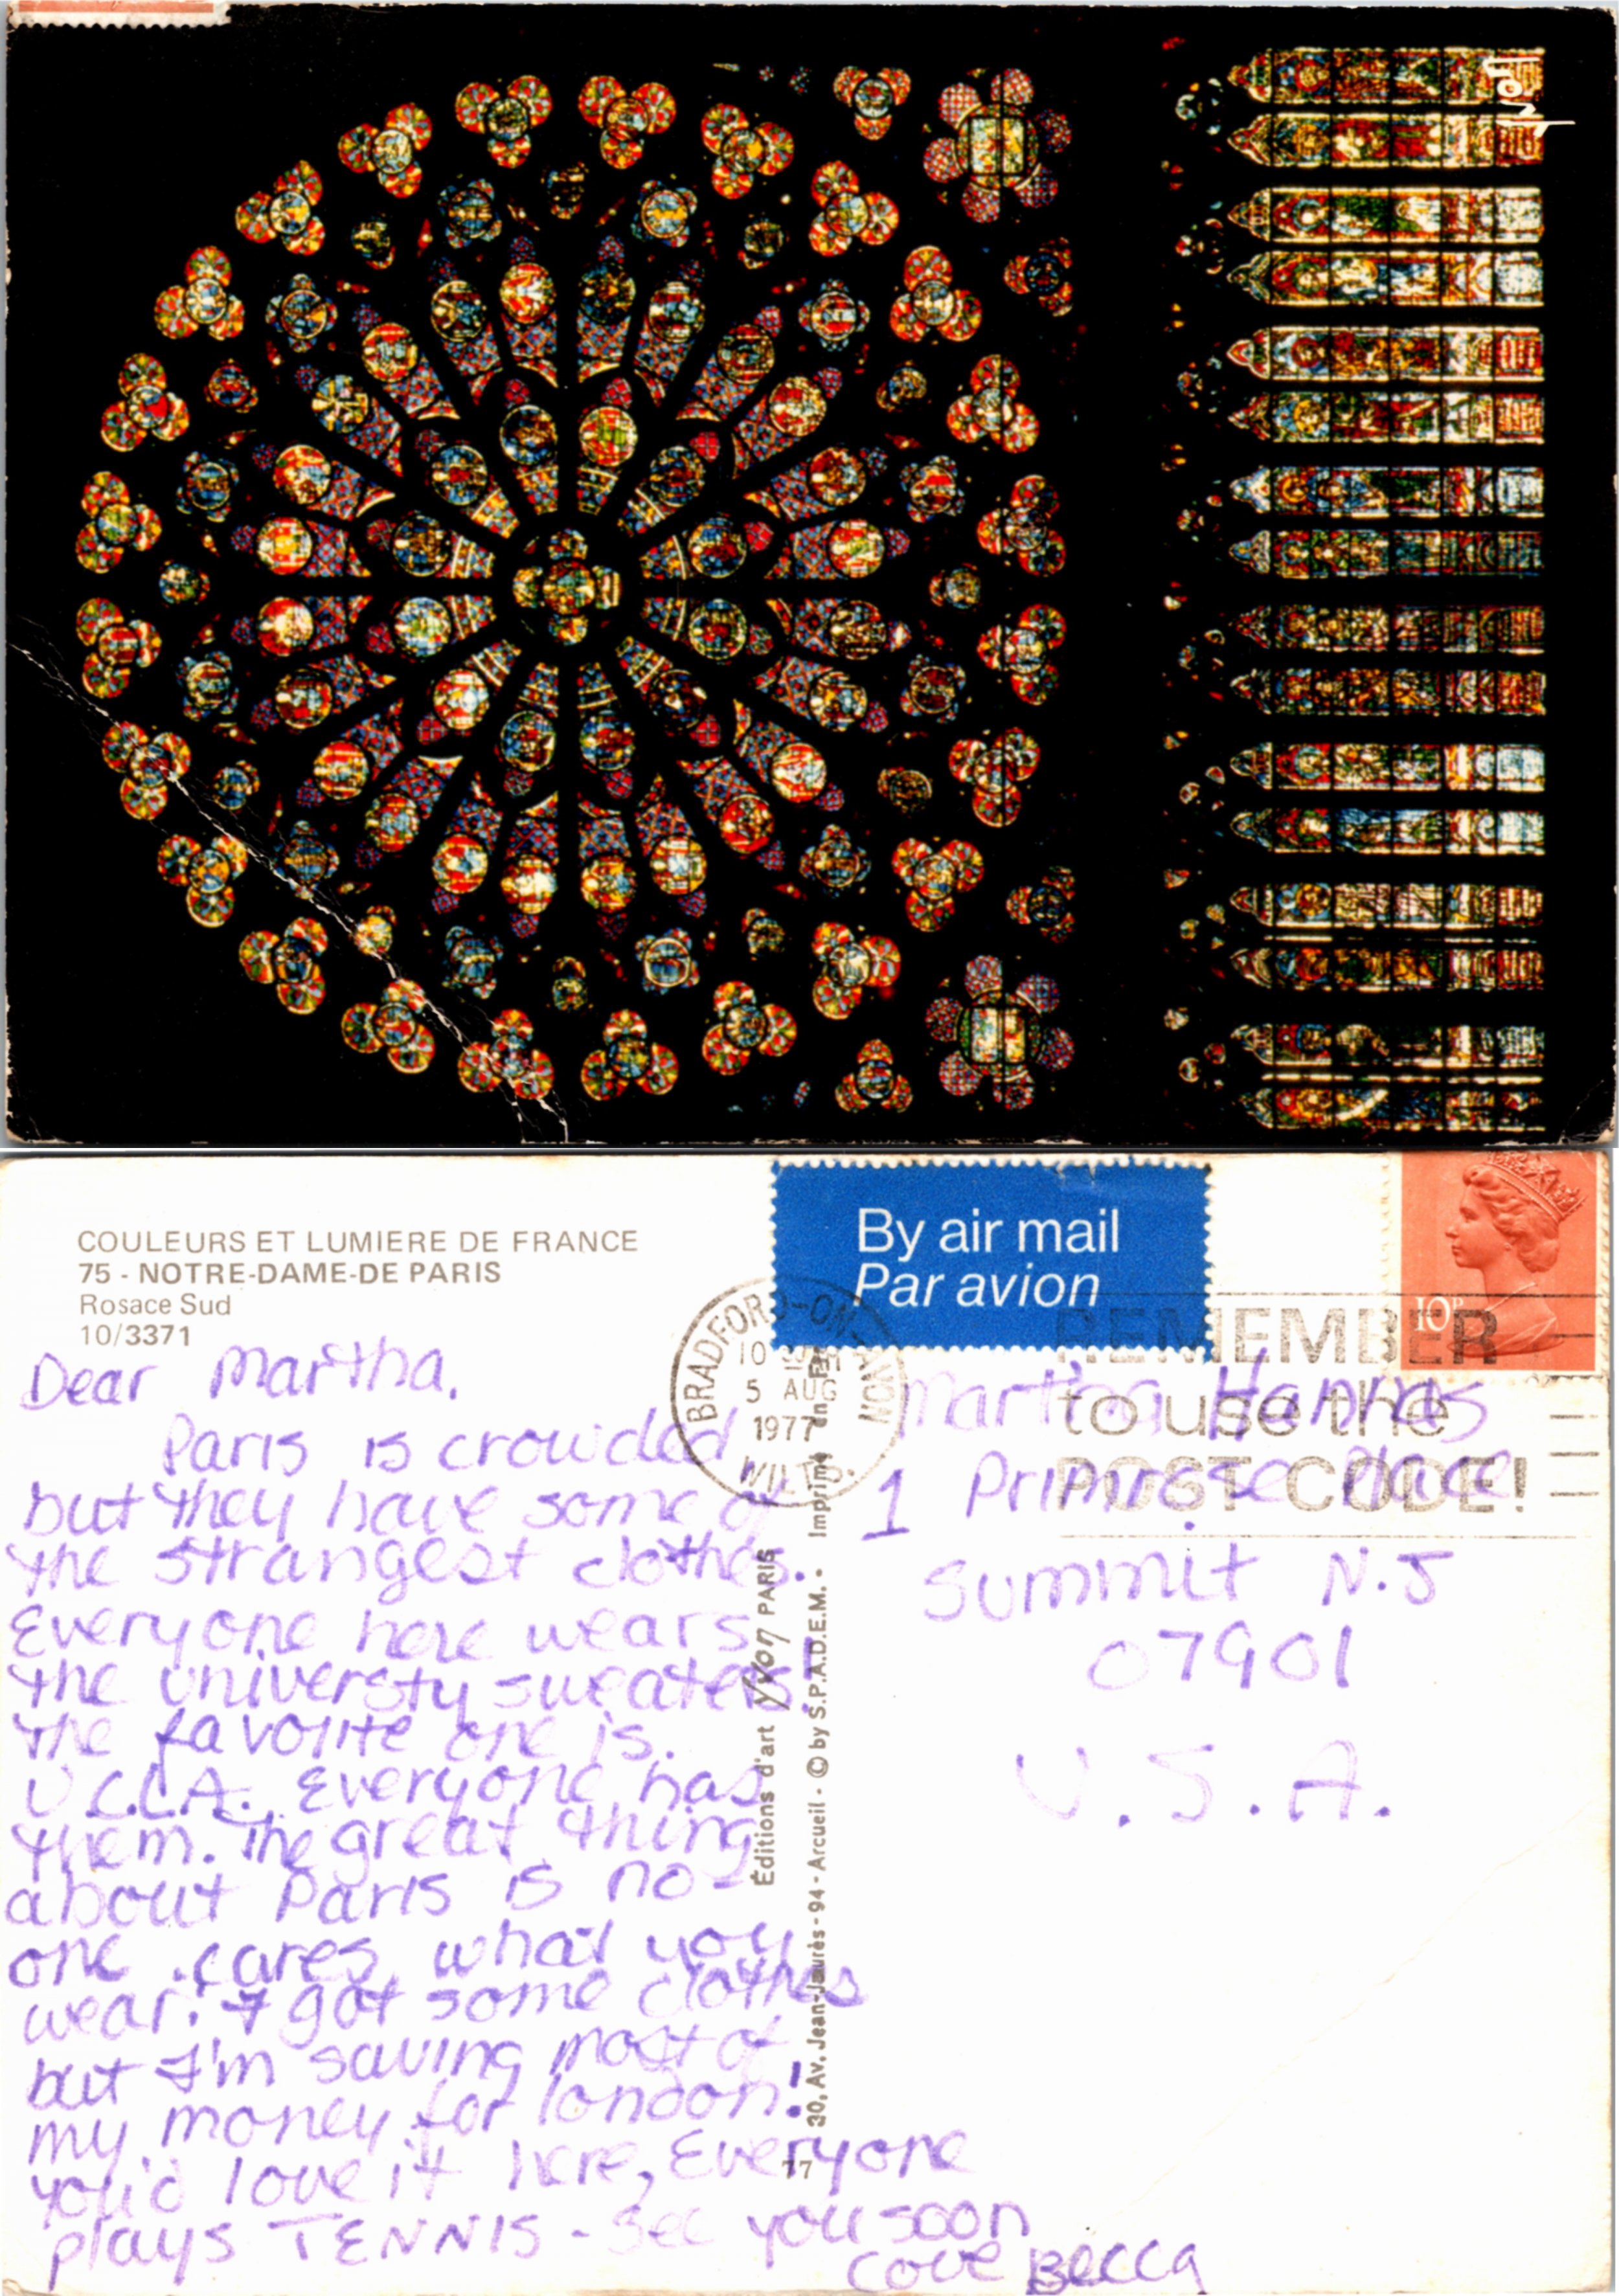 yvon
COULEURS ET LUMIERE DE FRANCE
75 - NOTRE-DAME-DE PARIS
Rosace Sud
10/3371
By air mail
Par avion
10P
BRADFORD-ON-AVON
10
5 AUG
1977
WILTS.
REMEMBER
to use the
POST CODE!
Dear Martha.
Paris is crowded
but they have some of
the strangest clothes.
Everyone here wears
the universty sweaters!
The favorite one is.
U.C.L.A. Everyone has
them. The great thing
about Paris is no-
one cares what you
wear. I got some clothes
but I'm saving most of
my money for london!
you'd love it here, Everyone
plays TENNIS - See you soon
Love Becca
Éditions d'art Yvon PARIS
30, Av. Jean-Jaurès - 94 - Arcueil - © by S.P.A.D.E.M. - Imprimé en
77
Martha
1 Primrose Place
Summit N.J
07901
U.S.A.